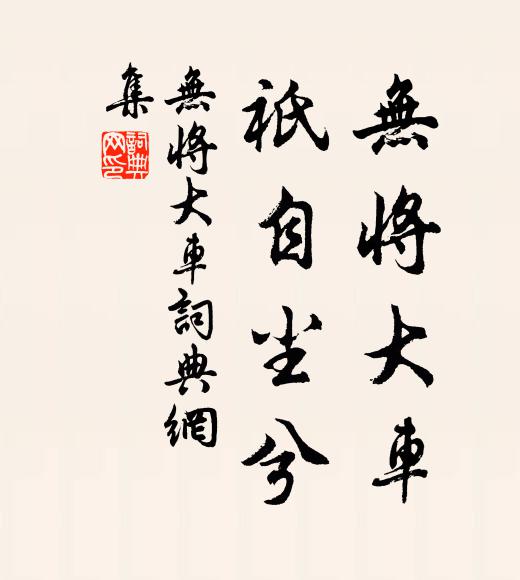 無將大車
祇自尘兮
無將大車詞典網
集
詞典
网印